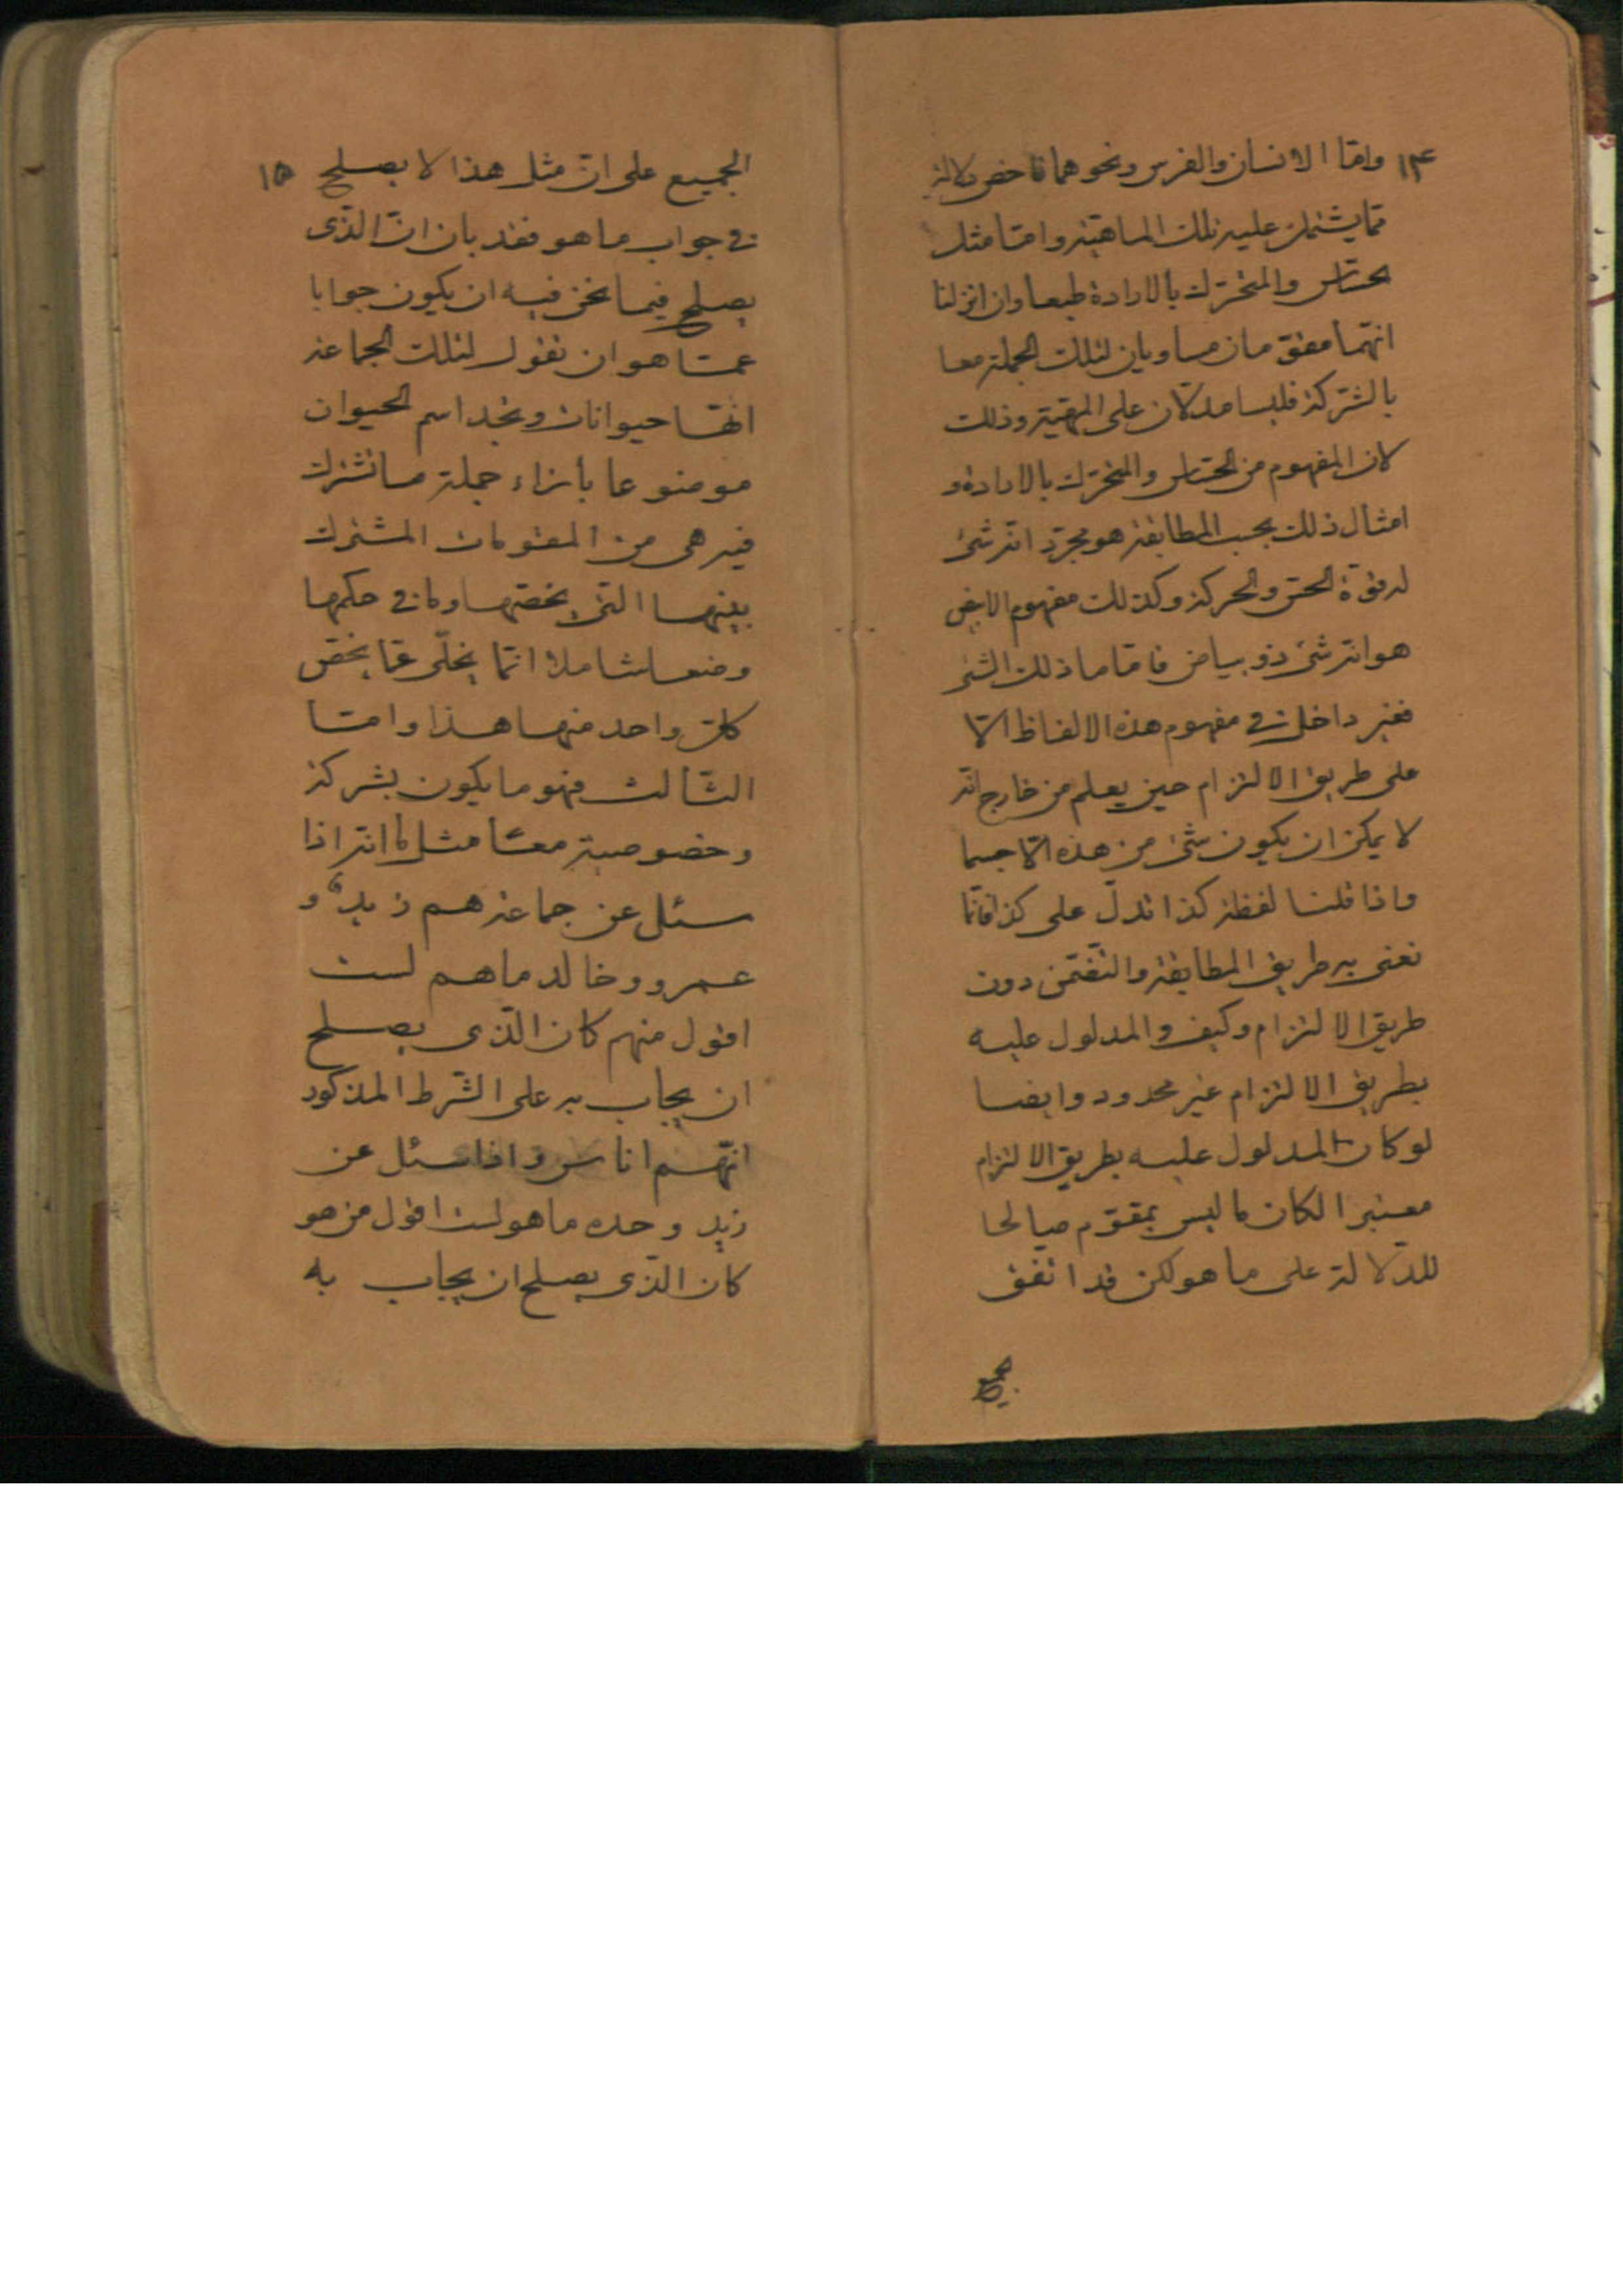 ١٤
واما الانسان والفرس ونحوهما فاخص دلالة
مما يشتمل عليه تلك الماهية واما مثل
الحساس والمتحرك بالارادة طبعا وان انزلنا
انهما مقومان مساويان لتلك الجملة معا
بالشركة فليسا يدلان على المهية وذلك
لان المفهوم من الحساس والمتحرك بالارادة و
امثال ذلك بحسب المطابقة هو مجرد انه شئ
له قوة الحس والحركة وكذلك مفهوم الابيض
هو انه شئ ذو بياض فاما ما ذلك الشئ
فغير داخل في مفهوم هذه الالفاظ الا
على طريق الالتزام حين يعلم من خارج انه
لا يمكن ان يكون شئ من هذه الا جسما
واذا قلنا لفظة كذا تدل على كذا فانما
نعنى به طريق المطابقة والتضمن دون
طريق الالتزام وكيف والمدلول عليه
بطريق الالتزام غير محدود وايضا
لو كان المدلول عليه بطريق الالتزام
معتبرا لكان ما ليس بمقوم صالحا
للدلالة على ما هو لكن قد اتفق
١٥
الجميع على ان مثل هذا لا يصلح
في جواب ما هو فقد بان ان الذى
يصلح فيما نحن فيه ان يكون جوابا
عما هو ان نقول لتلك الجماعة
انها حيوانات ونجد اسم الحيوان
موضوعا بأزاء جملة ما تشترك
فيه هى من المقومات المشتركة
بينها التى يخصها وما في حكمها
وضعا شاملا انما يخلى عما يخص
كل واحد منها هذا واما
الثالث فهو ما يكون بشركة
وخصوصية معا مثل ما انه اذا
سئل عن جماعة هم زيد و
عمرو وخالد ما هم لست
اقول منهم كان الذى يصلح
ان يجاب به على الشرط المذكور
انهم اناس واذا سئل عن
زيد وحده ما هو لست اقول من هو
كان الذى يصلح ان يجاب به